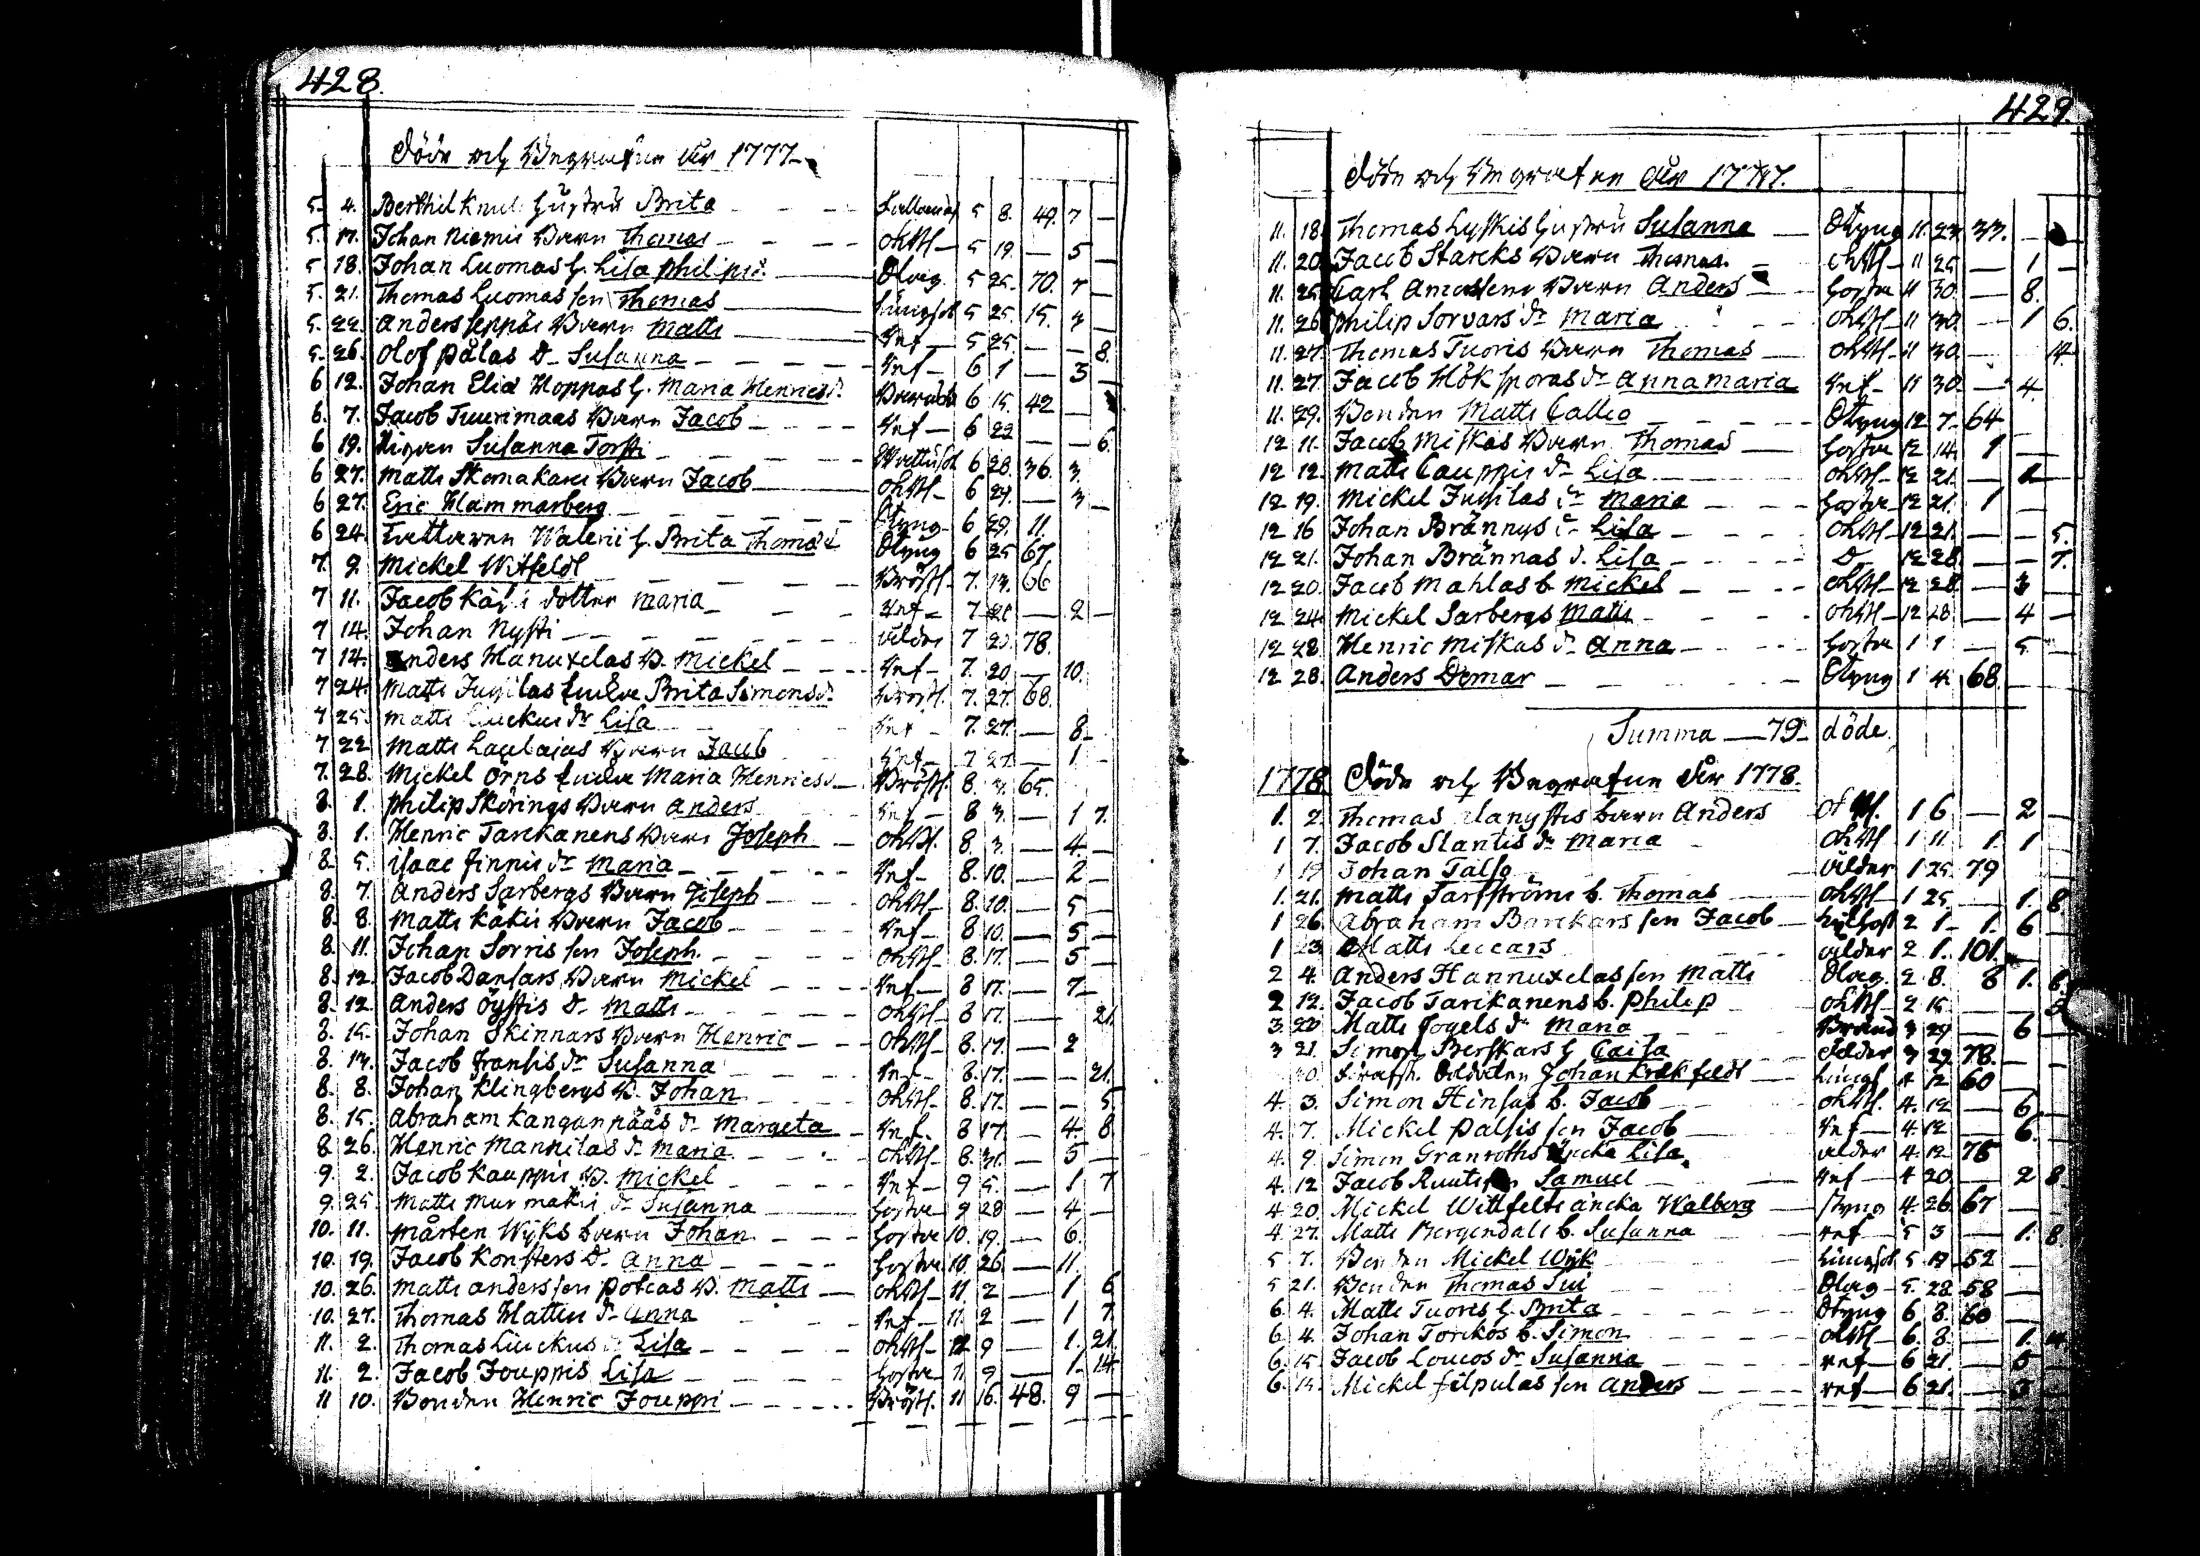 428.
Döde och Begrafne År 1777
5. 4. Berthil Knuts hustru Brita 5 8. 49. 7
5. 17. Johan Niemis Barn Thomas okHH 5 19. 5
5. 18. Johan Luomas h. Lisa Philipsd. Olag. 5 25. 70. 7
5. 21. Thomas Luomas son Thomas Lungsot 5 25. 15. 3
5. 22. Anders Seppäs Barn Matts Kef 5 25 8.
5. 26. Olof Pålas D. Susanna Kef 6 1 3
6 12. Johan Elia Hoppas h. Maria Henricsd. Barnbörd 6 15. 42
6. 7. Jacob Tuurimaas Barn Jacob Kef 6 22 6.
6 19. Pigan Susanna Torsti 6 28 36. 3.
6 27. Matts Skomakares Barn Jacob okHH 6 29. 3
6 27. Eric Hammarberg Otyng 6 29. 11.
6 24. Walerii h. Brita Thomæd Otyng 6 25 67.
7. 9. Mickel Witfeldt Bröstf. 7. 13. 66
7 11. Jacob dotter Maria Kef 7 2
7 14. Johan Nysti ålder 7 20. 78.
7 14. Anders Hanuxelas B. Mickel Kef 7. 20 10.
7 24. Matts Jussilas Enka Brita Simonsd. Bröstf. 7. 27. 68.
7 25. Matts Liuckus Dr Lisa Kef 7. 27. 8
7 22 Matts Laulaias Barn Jacob Kef 7 27. 1
7. 28. Mickel Orns Enka Maria Henricsd. Bröstf. 8. 3. 65.
8. 1. Philip Skörings Barn Anders Kef 8 3. 1 7.
8. 1. Henric Tarckanens Barn Joseph okHH. 8. 3. 4
8. 5. Isaac Finnis Dr Maria Kef 8. 10. 2
8. 7. Anders Sarbergs Barn Joseph okHH 8. 10. 5
8. 8. Matts Käkis Barn Jacob Kef 8 10. 5
8. 11. Johan Sorris son Joseph okHH 8. 17. 5
8. 12. Jacob Dansars Barn Mickel Kef 8 17. 7
8. 12 Anders Öystis D. Matts okHH 8 17. 21.
8. 15. Johan Skinnars Barn Henric okHH 8. 17. 2
8. 14. Jacob Fransis Dr Susanna Kef 8. 17. 21.
8. 8. Johan Klingbergs B. Johan okHH 8. 17. 5
8. 15. Abraham Kanganpääs Dr Margeta Kef 8 17. 4. 8.
8. 26. Henric Mannilas Dr Maria okHH 8. 31. 5
9. 2. Jacob Kauppis B. Mickel Kef 9 5. 1 7
9. 25 Matts Murmakis Dr Susanna hosta 9 28 4
10. 11. Mårten Wyks barn Johan hosta 10. 19. 6.
10. 19. Jacob Konsters D. Anna hosta 10. 26. 11.
10. 26. Matts Andersson Potcas B. Matts okHH 11. 2 1 6
10. 27. Thomas Hattus Dr Anna Kef 11. 2 1 7.
11. 2. Thomas Liuckus Lisa okHH 11 9 1. 21.
11. 2. Jacob Jouppis Lisa hosta 11 9 1. 14.
11 10. Bonden Henric Jouppi Bröstf. 11 16. 48. 9
429.
Döde och Begrafne År 1777.
11. 18. Thomas Lyskis hustru Susanna Otyng 11. 23. 33.
11. 20. Jacob Starcks Barn Thomas okHH 11 25 1
11. 25. Carl Barn Anders hosta 11 30. 8.
11. 26. Philip Sorvars Dr Maria okHH 11 30. 1 6.
11. 27. Thomas Tuoris Barn Thomas okHH 11 30. 14.
11. 27. Jacob Höksporas Dr Annamaria Kef 11 30. 4.
11. 29. Bonden Matts Callio Otyng 12 7. 64.
12 11. Jacob Miskas Barn Thomas hosta 12 14. 1
12 12. Matts Cauppis Dr Lisa okHH 12 21. 1
12 19. Mickel Jussilas Maria hosta 12 21. 1
12 16 Johan Brännys Lisa okHH 12 21. 5.
12 21. Johan Brännas d. Lisa D 12 28. 7.
12 20. Jacob Mahlas b Mickel okHH 12 28. 3
12 24. Mickel Sarbergs Matts okHH 12 28. 4
12 28. Henric Miskas Dr Anna hosta 1 1 5
12 28. Anders Domar Otyng 1 4. 68.
Summa 79 döde
1778. Döde och Begrafne År 1778.
1. 2. Thomas barn Anders okHH. 1 6 2
1 7. Jacob Slantis Dr Maria okHH 1 11 1. 1
1 19 Johan Talso ålder 1 25. 79
1. 21. Matts Tarfströms b. Thomas okHH 1 25. 1. 8.
1 26. Abraham Barckars son Jacob 2 1. 1. 6
1 23. Matts Leccars ålder 2 1. 101.
2 4. Anders Hannuxelas son Matts Olag. 2 8. 8 1. 6.
2 12. Jacob Tarckanens b. Philip okHH 2 15
3. 22 Matts Fogels Dr Maria 3 29 6
3 21. Simon Berskars h Caisa ålder 3 29. 78.
30. Johan Krakfeldt Lungs 4 12 60
4. 3. Simon Hinsas b. Jacob okHH. 4. 12 6.
4. 7. Mickel Palsis son Jacob Kef 4. 12 6.
4. 9. Simon Granroths Encka Lisa ålder 4. 12 75
4. 12 Jacob Samuel Kef 4 20. 2 8.
4 20. Mickel Wittfelts äncka Walberg styng 4. 26. 67
4 27. Matts Bergendals b. Susanna Kef 5 3 1. 8.
5 7. Bonden Mickel Wyk Lungsot 5. 52
5 21. Bonden Thomas Olag 5. 28 58
6. 4. Matts Tuoris h. Brita Otyng 6 8. 60
6. 4. Johan Torckos b. Simon okHH 6. 8. 1.
6. 15. Jacob Loucos Dr Susanna Kef 6 21. 5
6. 15. Mickel Filpulas son Anders Kef 6 21. 3